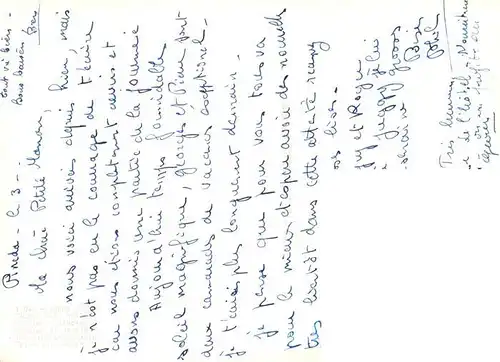 tout va bien.
bons baisers
Pineda - le 3 -
Ma chère Petite Maman,
nous voici arrivés depuis hier, mais
je n'ai pas eu le courage de t'écrire
car nous étions complètement crevés et
avons dormi une partie de la journée
Aujourd'hui temps formidable
soleil magnifique, Georges et Pierre sont
deux camarades de vacances exceptionnels.
je t'écrirai plus longuement demain.
je pense que pour vous tous va
pour le mieux et espère avoir des nouvelles
très bientôt dans cette attente reçoy
nos bises.
et Roger
gros
Très heureux
de l'hôtel,